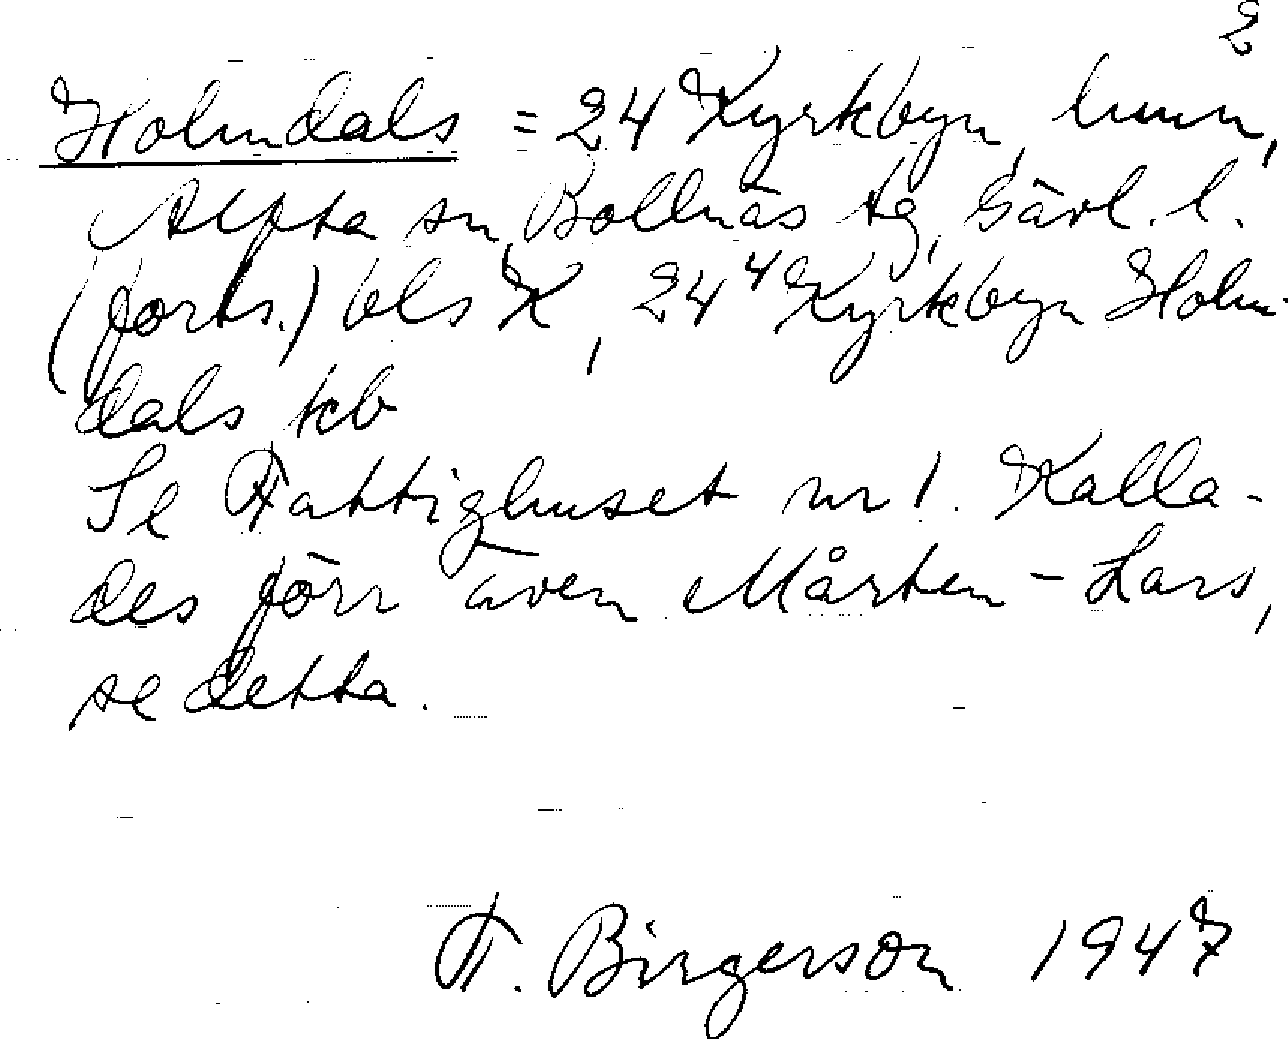 2
Holmdals = 24 Kyrkbyn, hmn,
Alfta sn, Bollnäs tg, Gävl. l.
(forts.) bls K, 24⁴ Kyrkbyn Holm-
dals kb
Se Fattighuset nr 1. Kalla-
des förr även Mårten-Lars,
se detta.
F. Birgerson 1947